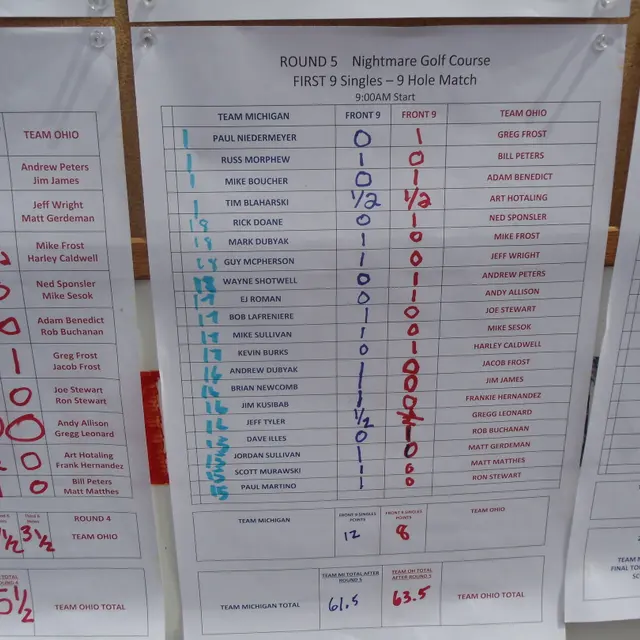 TEAM OHIO
Andrew Peters
Jim James
Jeff Wright
Matt Gerdeman
Mike Frost
Harley Caldwell
Ned Sponsler
Mike Sesok
Adam Benedict
Rob Buchanan
Greg Frost
1 Jacob Frost
Joe Stewart
0 Ron Stewart
Andy Allison
0 Gregg Leonard
Art Hotaling
0 Frank Hernandez
Bill Peters
0 Matt Matthes
ROUND 4
3 1/2 TEAM OHIO
5 1/2 TEAM OHIO TOTAL
ROUND 5 Nightmare Golf Course
FIRST 9 Singles – 9 Hole Match
9:00AM Start
TEAM MICHIGAN FRONT 9 FRONT 9 TEAM OHIO
1 PAUL NIEDERMEYER 0 1 GREG FROST
1 RUSS MORPHEW 1 0 BILL PETERS
1 MIKE BOUCHER 0 1 ADAM BENEDICT
1 TIM BLAHARSKI 1/2 1/2 ART HOTALING
18 RICK DOANE 0 1 NED SPONSLER
18 MARK DUBYAK 1 0 MIKE FROST
18 GUY MCPHERSON 1 0 JEFF WRIGHT
18 WAYNE SHOTWELL 0 1 ANDREW PETERS
17 EJ ROMAN 0 1 ANDY ALLISON
17 BOB LAFRENIERE 1 0 JOE STEWART
17 MIKE SULLIVAN 1 0 MIKE SESOK
17 KEVIN BURKS 0 1 HARLEY CALDWELL
16 ANDREW DUBYAK 1 0 JACOB FROST
16 BRIAN NEWCOMB 1 0 JIM JAMES
16 JIM KUSIBAB 1 0 FRANKIE HERNANDEZ
16 JEFF TYLER 1/2 GREGG LEONARD
DAVE ILLES 0 1 ROB BUCHANAN
JORDAN SULLIVAN 1 0 MATT GERDEMAN
SCOTT MURAWSKI 1 0 MATT MATTHES
PAUL MARTINO 1 0 RON STEWART
TEAM MICHIGAN FRONT 9 SINGLES POINTS 12 FRONT 9 SINGLES POINTS 8 TEAM OHIO
TEAM MICHIGAN TOTAL TEAM MI TOTAL AFTER ROUND 5 61.5 TEAM OH TOTAL AFTER ROUND 5 63.5 TEAM OHIO TOTAL